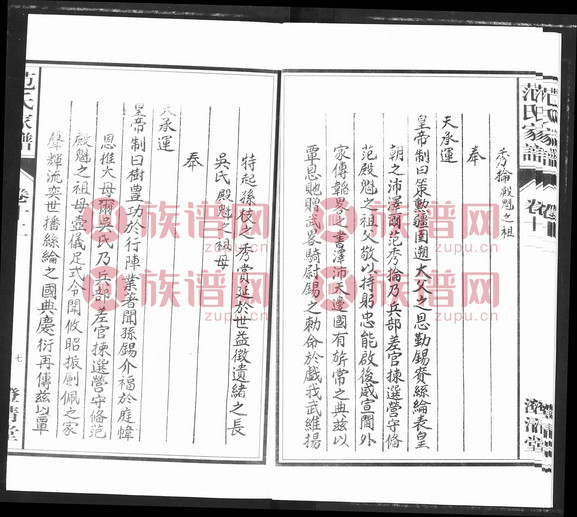 范氏家譜
卷十
澄清堂
秀掄殿魁之祖
奉
天承運
皇帝制曰策勳疆圉遡大父之恩勤錫賚絲綸表皇
朝之沛澤爾范秀掄乃兵部差官揀選營守俻
范殿魁之祖父敬以持躬忠能啟後威宣閫外
家傳韜畧之書澤沛天邊國有旂常之典兹以
覃恩貤贈武畧騎尉錫之勅命於戲我武維揚
特起孫枝之秀賞延於世益徵遺緒之長
吳氏殿魁之祖母
奉
天承運
皇帝制曰樹豊功於行陣業著聞孫錫介福於庭幃
恩推大母爾吳氏乃兵部差官揀選營守俻范
殿魁之祖母壼儀足式令聞攸昭振劍佩之家
聲輝流奕世播絲綸之國典慶衍再傳兹以覃
范氏家譜
卷十
七
澄清堂
族谱网
zupu.cn
族谱网
zupu.cn
族谱网
zupu.cn
族谱网
zupu.cn